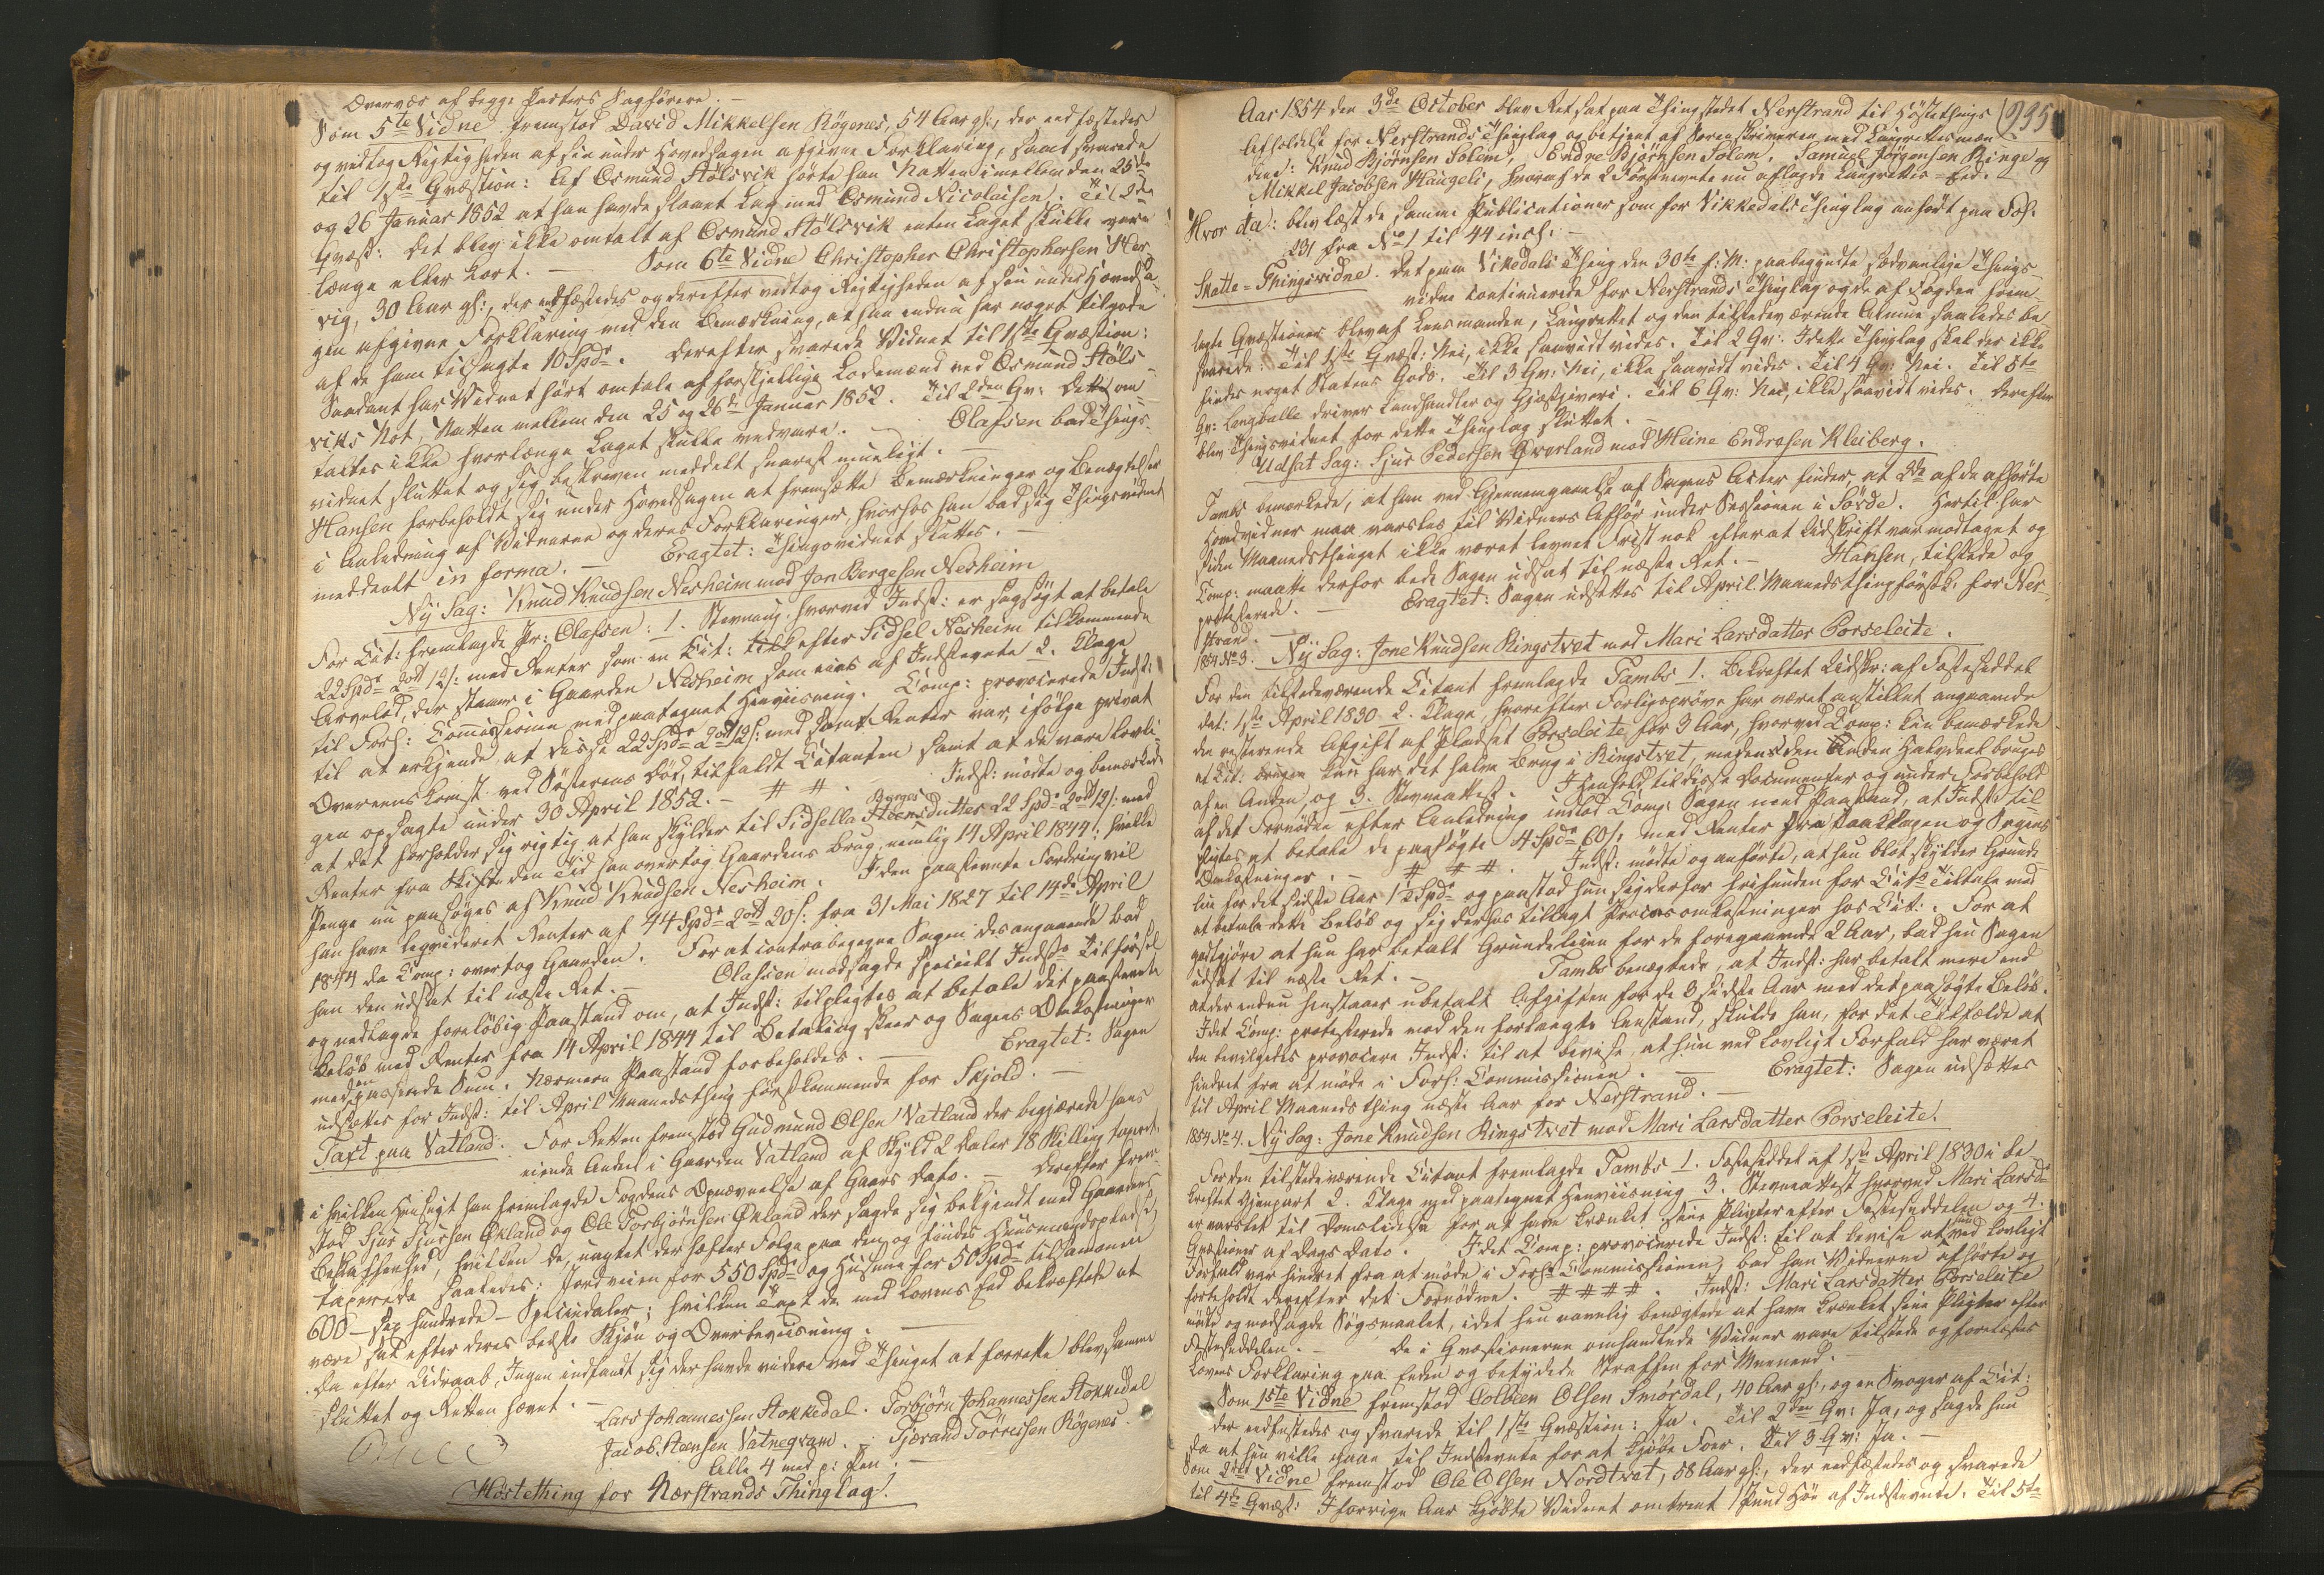 Overvær af begge Parters Sagførere. –
Som 5te Vidne fremstod David Mikkelsen Røgenes, 54 Aar gl:, der eedfæstedes
og vedtog Rigtigheden af sin under Hovedsagen afgivne Forklaring, samt svarede
til 1ste Qvæstion: Af Osmund Stølsvik hørte han Natten imellem den 25de
og 26 Januar 1852 at han havde sluttet Lag med Osmund Nicolaisen. Til 2den
Qvæst: Det blev ikke omtalt af Osmund Stølsvik enten Laget skulle vare
længe eller kort. – Som 6te Vidne Christopher Christophersen
vig, 30 Aar gl:, der eedfæstedes og derefter vedtog Rigtigheden af sin under Hovedsa-
gen afgivne Forklaring med den Bemærkning, at han endnu har noget tilgode
af de ham tilsagte 10 Spd. Derefter svarede Vidnet til 1ste Qvæstion:
Saadant har Vidnet hørt omtale af forskjellige Lodsmænd ved Osmund Støls-
viks Not, Natten mellem den 25 og 26de Januar 1852. Til 2den Qv: Dette om-
taltes ikke hvorlænge Laget skulle vedvare. – Olafsen bad Things-
vidnet sluttet og sig beskreven meddelt snarest mueligt. –
Hansen forbeholdt sig under Hovedsagen at fremsætte Bemærkninger og Benægtelser
i Anledning af Vidnerne og deres Forklaringer, hvorhos han bad sig Thingsvidnet
meddeelt in forma. – Eragtet: Thingsvidnet sluttes. –
Ny Sag: Knud Knudsen Nesheim mod Jon Bergesen Nesheim
For Cit: fremlagde Pr: Olafsen: 1. Stevning hvorved Indst: er sagsøgt at betale
22 Spd 2ort 12 s: med Renter som en Cit: efter Sidsel Nesheim tilkommende
Arvelod, der staaer i Gaarden Nesheim som eies af Indstevnte 2. Klage
til Forl: Commissionen med paategnet Henviisning. Comp: provocerede Indst:
til at erkjende at disse 22 Spd 2ort 12 s: med samt Renter var, ifølge privat
Overeenskomst ved Søsterens Død, tilfaldt Citanten samt at de vare lovli-
gen opsagte under 30 April 1852. – # #. Indst: mødte og bemærkede
at det forholder sig rigtig at han skylder til Sidsella Steensdatter Berges 22 Spd 2ort 12 s: med
Renter fra Skifte den Tid han overtog Gaardens Brug, nemlig 14 April 1844; hvilke
Penge nu paasøges af Knud Knudsen Nesheim. I den paastevnte Fordring vil
han have liqvideret Renter af 44 Spd 2ort 20 s: fra 31 Mai 1827 til 14de April
1844 da Comp: overtog Gaarden. For at contrabegegne Sagen desangaaende bad
han den udsat til næste Ret. – Olafsen modsagde specielt Indst: Tilførsel
og nedlagde foreløbig Paastand om, at Indst: tilpligtes at betale det paastevnte
Beløb med Renter fra 14 April 1844 til Betaling skeer og Sagens Omkostninger
med en passende Sum. Nærmere Paastand forbeholdes. – Eragtet: Sagen
udsættes for Indst: til April Maanedsthing førstkommende for Skjold. –
Taxt paa Vatland. For Retten fremstod Gudmund Olsen Vatland der begjærede hans
eiende Andeel i Gaarden Vatland af Skyld 2 Daler 18 Skilling taxeret,
i hvilken Hensigt han fremlagde Fogdens Opnævnelse af Gaars Dato. – Derefter frem-
stod Sjur Sjursen Økland og Ole Torbjørnsen Økland der sagde sig bekjendt med Gaardens
Beskaffenhed, hvilken de, uagtet der hæfter Følge paa den, og findes Huusmandsplads
taxerede saaledes: Jordveien for 550 Spd og Husene for 50 Spd tilsammen
600 – sex hundrede – Speciedaler; hvilken Taxt de med Lovens Eed bekræftede at
være sat efter deres bedste Skjøn og Overbeviisning. –
Da efter Udraab, Ingen indfandt sig der havde videre ved Thinget at forrette blev samme
sluttet og Retten hævet. –
Lars Johannessen Stokkedal. Torbjørn Johannessen Stokkedal
Jacob Steensen Vatnegram. – Tjerand Tørressen Røgenes.
Alle 4 med p: Pen. –
Høstething for Nærstrands Thinglag.
235
Aar 1854 den 3de October blev Ret sat paa Thingstedet Nerstrand til Høstethings
Afholdelse for Nerstrands Thinglag og betjent af Sorenskriveren med Laugrettesmæn-
dene: Knud Bjørnsen Solem, Endre Bjørnsen Solem, Samuel Jørgensen Ringe og
Mikkel Jacobsen Haugeli, hvoraf de 2 Førstnevnte nu aflagde Laugrettes-Eed.
Hvor da: blev læst de samme Publicationer som for Vikkedals Thinglag anført paa Fol.
231 fra No 1 til 44 incl: –
Skatte-Thingsvidne. Det paa Vikedals Thing den 30te f: M: paabegyndte sædvanlige Things-
vidne continuerede for Nerstrands Thinglag og de af Fogden frem-
lagte Qvæstioner blev af Lensmanden, Laugrettet og den tilstedeværende Almue saaledes be-
svarede: Til 1ste Qvæst: Nei, ikke saavidt vides. Til 2 Qv: I dette Thinglag skal der ikke
findes noget Statens Gods. Til 3 Qv: Nei, ikke saavidt vides. Til 4 Qv: Nei. Til 5te
Qv: Langballe driver Landhandler og Gjæstgiveri. Til 6 Qv: Nei, ikke saavidt vides. Derefter
blev Thingsvidnet for dette Thinglag sluttet.
Udsat Sag: Sjur Pedersen Qverland mod Heine Endresen Kleiberg.
Tambs bemerkede, at han ved Gjennemgaaelse af Sagens Acter finder, at 2de af de afhørte
Hovedvidner maa varsles til Vidners Afhør under Sessionen i Sørde. Hertil har
siden Maanedsthinget ikke været levnet Frist nok efterat Udskrift var modtaget og
Comp: maatte derfor bede Sagen udsat til næste Ret. – Hansen, tilstede og
protesterede. – Eragtet: Sagen udsættes til April Maanedsthing førstk: for Ner-
strand. –
1854 No 3. Ny Sag: Jone Knudsen Ringstvet mod Mari Larsdatter Porseleite.
For den tilstedeværende Citant fremlagde Tambs 1. Bekræftet Udskr: af Fæsteseddel
dat: 1ste April 1830 2. Klage, hvorefter Forligsprøve har været anstillet angaaende
den resterende Afgift af Pladset Porseleite for 3 Aar, hvorved Comp: kun bemærkede
at Cit: kun har det halve Brug i Ringstvet, medens den anden Halvdeel bruges
af en Anden, og 3. Stevneattest. I Henhold til disse Documenter og under Forbehold
af det Fornødne efter Anledning indlod Comp: Sagen med Paastand, at Indst: til-
pligtes at betale de paasøgte 4 Spd 60 s: med Renter fra Paaklagen og Sagens
Omkostninger. – # # #. Indst: mødte og anførte, at hun blot skylder Grunde-
leie for det sidste Aar 1½ Spd og paastod hun sig derfor frifunden for Cits Tiltale mod
at betale dette Beløb og sig derhos tillagt Procesomkostninger hos Cit:. For at
godtgjøre at hun har betalt Grundeleien for de foregaaende 2 Aar, bad hun Sagen
udsat til næste Ret. – Tambs benægtede, at Indst: har betalt mere end
at der endnu henstaaer ubetalt Afgiften for de 3 sidste Aar med det paasøgte Beløb.
Idet Comp: protesterede mod den forlangte Anstand, skulde han, for det Tilfælde at
den bevilgedes provocere Indst: til at bevise, at hun ved lovligt Forfald har været
hindret fra at møde i Forl: Commissionen. – Eragtet: Sagen udsættes
til April Maaneds thing næste Aar for Nerstrand. –
1854 No 4. Ny Sag: Jone Knudsen Ringstvet mod Mari Larsdatter Porseleite.
For den tilstedeværende Citant fremlagde Tambs 1. Fæsteseddel af 1ste April 1830 i be-
kræftet Gjenpart 2. Klage med paategnet Henviisning 3. Stevneattest hvorved Mari Larsd
er varslet til Domslidelse for at have krænket sine Pligter efter Fæsteseddelen og 4.
Qvæstioner af Dags Dato. Idet Comp: provocerede Indst: til at bevise at hun ved lovligt
Forfald var hindret fra at møde i Forls Commissionen, bad han Vidnerne afhørte og
forbeholdt derefter det Fornødne. # # # #. Indst: Mari Larsdatter Porseleite
mødte og modsagde Søgsmaalet, idet hun navnlig benægtede at have krænket sine Pligter efter
Fæsteseddelen. – De i Qvæstionerne omhandlede Vidner vare tilstede og forelæstes
Lovens Forklaring paa Eeden og betydede Straffen for Meeneed.
Som 1ste Vidne fremstod Colbein Olsen Smørdal, 40 Aar gl:, og en Svoger af Cit:
der eedfæstedes og svarede til 1ste Qvæstion: Ja. Til 2den Qv: Ja, og sagde hun
da at hun ville gaae til Indstevnte for at kjøbe Foer. Til 3 Qv: Ja. –
Som 2det Vidne fremstod Ole Olsen Nordtvet, 58 Aar gl:, der eedfæstedes og svarede
til 4de Qvæst: I forrige Aar kjøbte Vidnet omtrent 1 Pund Høe af Indstevnte. Til 5te